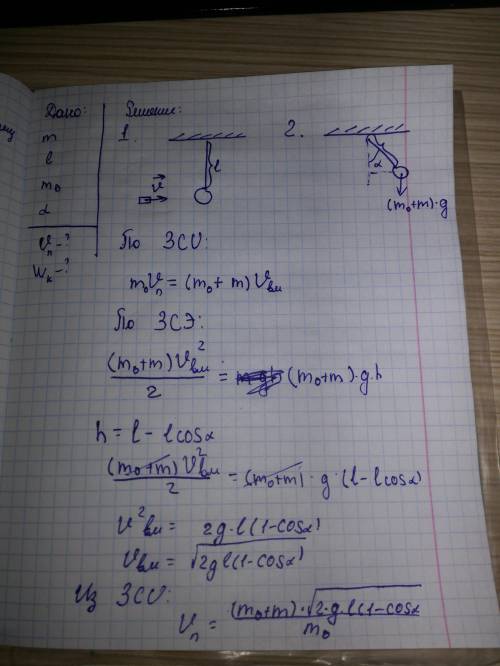 Дано:
m
l
m₀
α
Vп-?
Wк-?
Решение:
1.
l
v⃗
2.
α
(m₀+m)·g
По ЗСИ:
m₀Vп = (m₀+m)Vвм
По ЗСЭ:
(m₀+m)V²вм / 2 = (m₀+m)·g·h
h = l - l cosα
(m₀+m)V²вм / 2 = (m₀+m)·g·(l - l cosα)
V²вм = 2g·l(1-cosα)
Vвм = √2gl(1-cosα)
Из ЗСИ:
Vп = (m₀+m)·√2·g·l(1-cosα / m₀